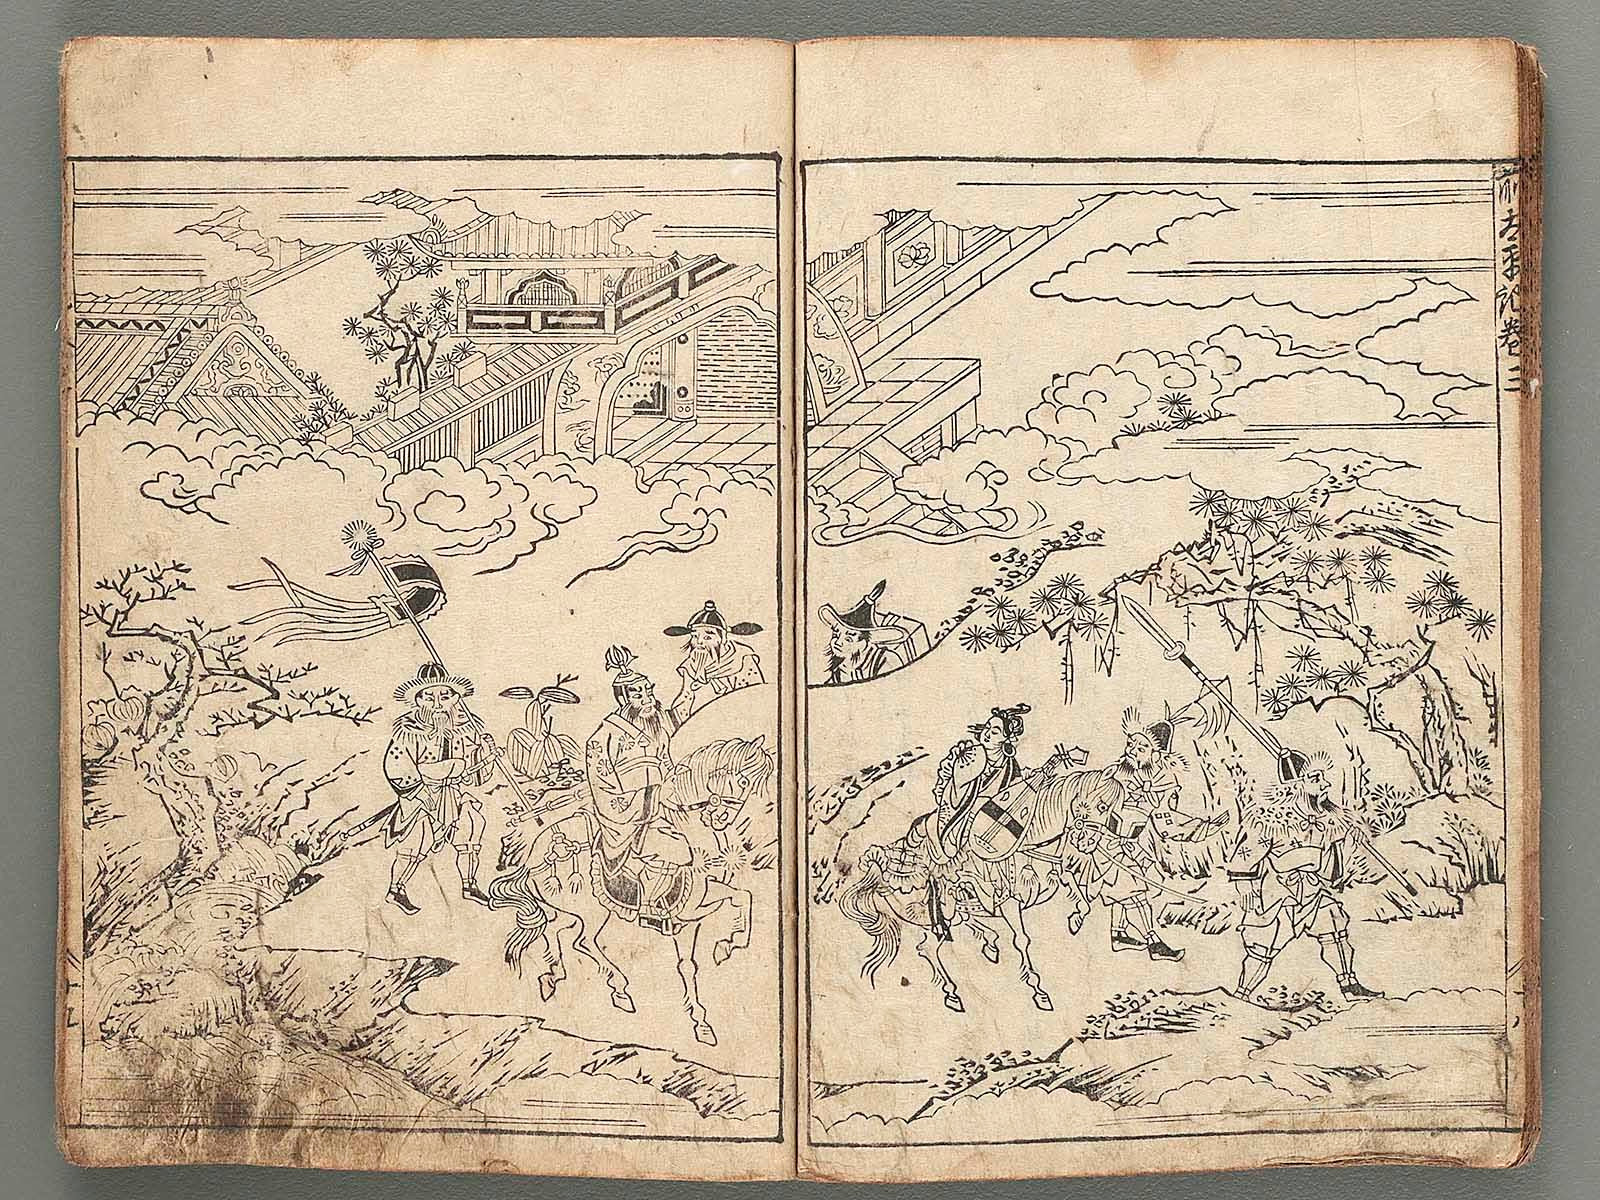 前太平記巻三